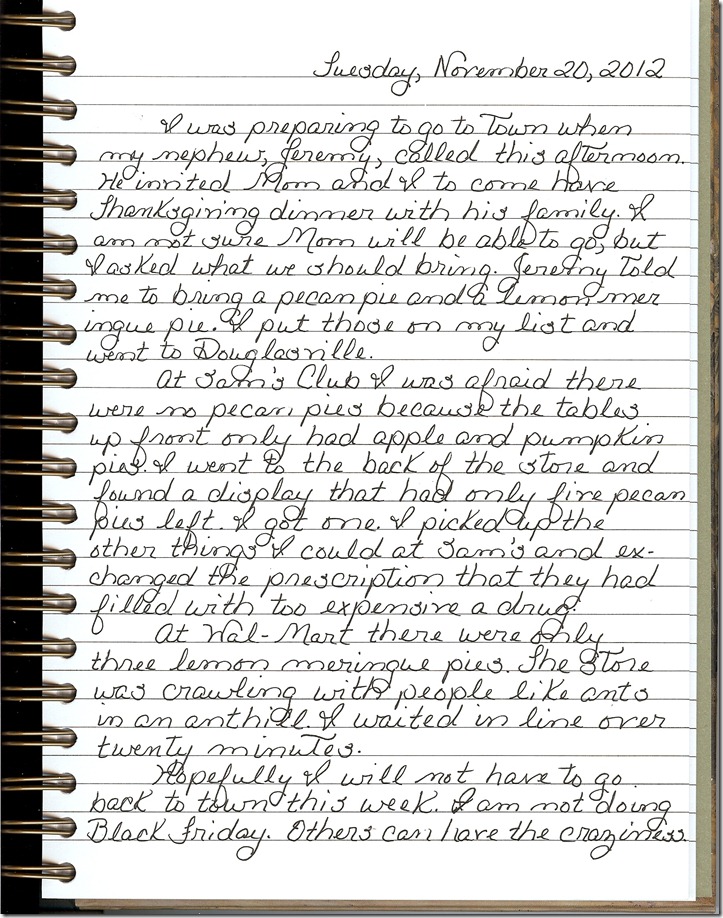 Tuesday, November 20, 2012
I was preparing to go to Town when
my nephew, Jeremy, called this afternoon.
He invited Mom and I to come have
Thanksgiving dinner with his family. I
am not sure Mom will be able to go, but
I asked what we should bring. Jeremy Told
me to bring a pecan pie and a lemon mer
ingue pie. I put those on my list and
went to Douglasville.
At Sam's Club I was afraid there
were no pecan pies because the tables
up front only had apple and pumpkin
pies. I went to the back of the store and
found a display that had only five pecan
pies left. I got one. I picked up the
other things I could at Sam's and ex-
changed the prescription that they had
filled with too expensive a drug.
At Wal-Mart there were only
three lemon meringue pies. The store
was crawling with people like ants
in an anthill. I waited in line over
twenty minutes.
Hopefully I will not have to go
back to town this week. I am not doing
Black Friday. Others can have the craziness.